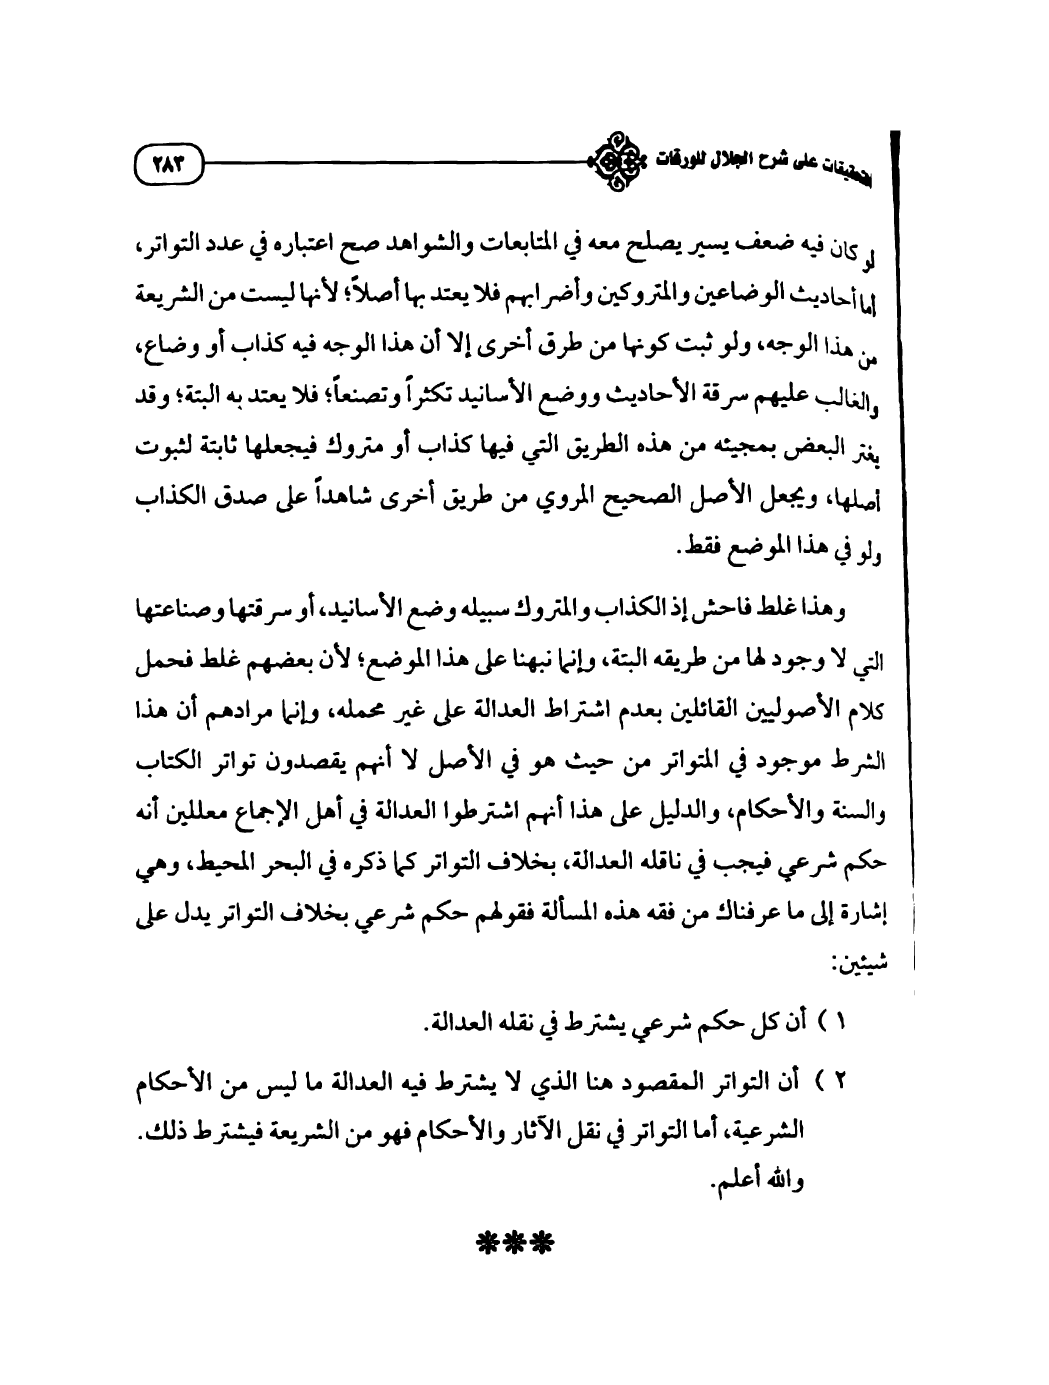 التحقيقات على شرح الجلال للورقات
٢٨٣
لو كان فيه ضعف يسير يصلح معه في المتابعات والشواهد صح اعتباره في عدد التواتر،
أما أحاديث الوضاعين والمتروكين وأضرابهم فلا يعتد بها أصلاً؛ لأنها ليست من الشريعة
من هذا الوجه، ولو ثبت كونها من طرق أخرى إلا أن هذا الوجه فيه كذاب أو وضاع،
والغالب عليهم سرقة الأحاديث ووضع الأسانيد تكثراً وتصنعاً؛ فلا يعتد به البتة؛ وقد
يغتر البعض بمجيئه من هذه الطريق التي فيها كذاب أو متروك فيجعلها ثابتة لثبوت
أصلها، ويجعل الأصل الصحيح المروي من طريق أخرى شاهداً على صدق الكذاب
ولو في هذا الموضع فقط.
وهذا غلط فاحش إذ الكذاب والمتروك سبيله وضع الأسانيد، أو سرقتها وصناعتها
التي لا وجود لها من طريقه البتة، وإنما نبهنا على هذا الموضع؛ لأن بعضهم غلط فحمل
كلام الأصوليين القائلين بعدم اشتراط العدالة على غير محمله، وإنما مرادهم أن هذا
الشرط موجود في المتواتر من حيث هو في الأصل لا أنهم يقصدون تواتر الكتاب
والسنة والأحكام، والدليل على هذا أنهم اشترطوا العدالة في أهل الإجماع معللين أنه
حكم شرعي فيجب في ناقله العدالة، بخلاف التواتر كما ذكره في البحر المحيط، وهي
إشارة إلى ما عرفناك من فقه هذه المسألة فقولهم حكم شرعي بخلاف التواتر يدل على
شيئين:
١) أن كل حكم شرعي يشترط في نقله العدالة.
٢) أن التواتر المقصود هنا الذي لا يشترط فيه العدالة ما ليس من الأحكام
الشرعية، أما التواتر في نقل الآثار والأحكام فهو من الشريعة فيشترط ذلك.
والله أعلم.
***